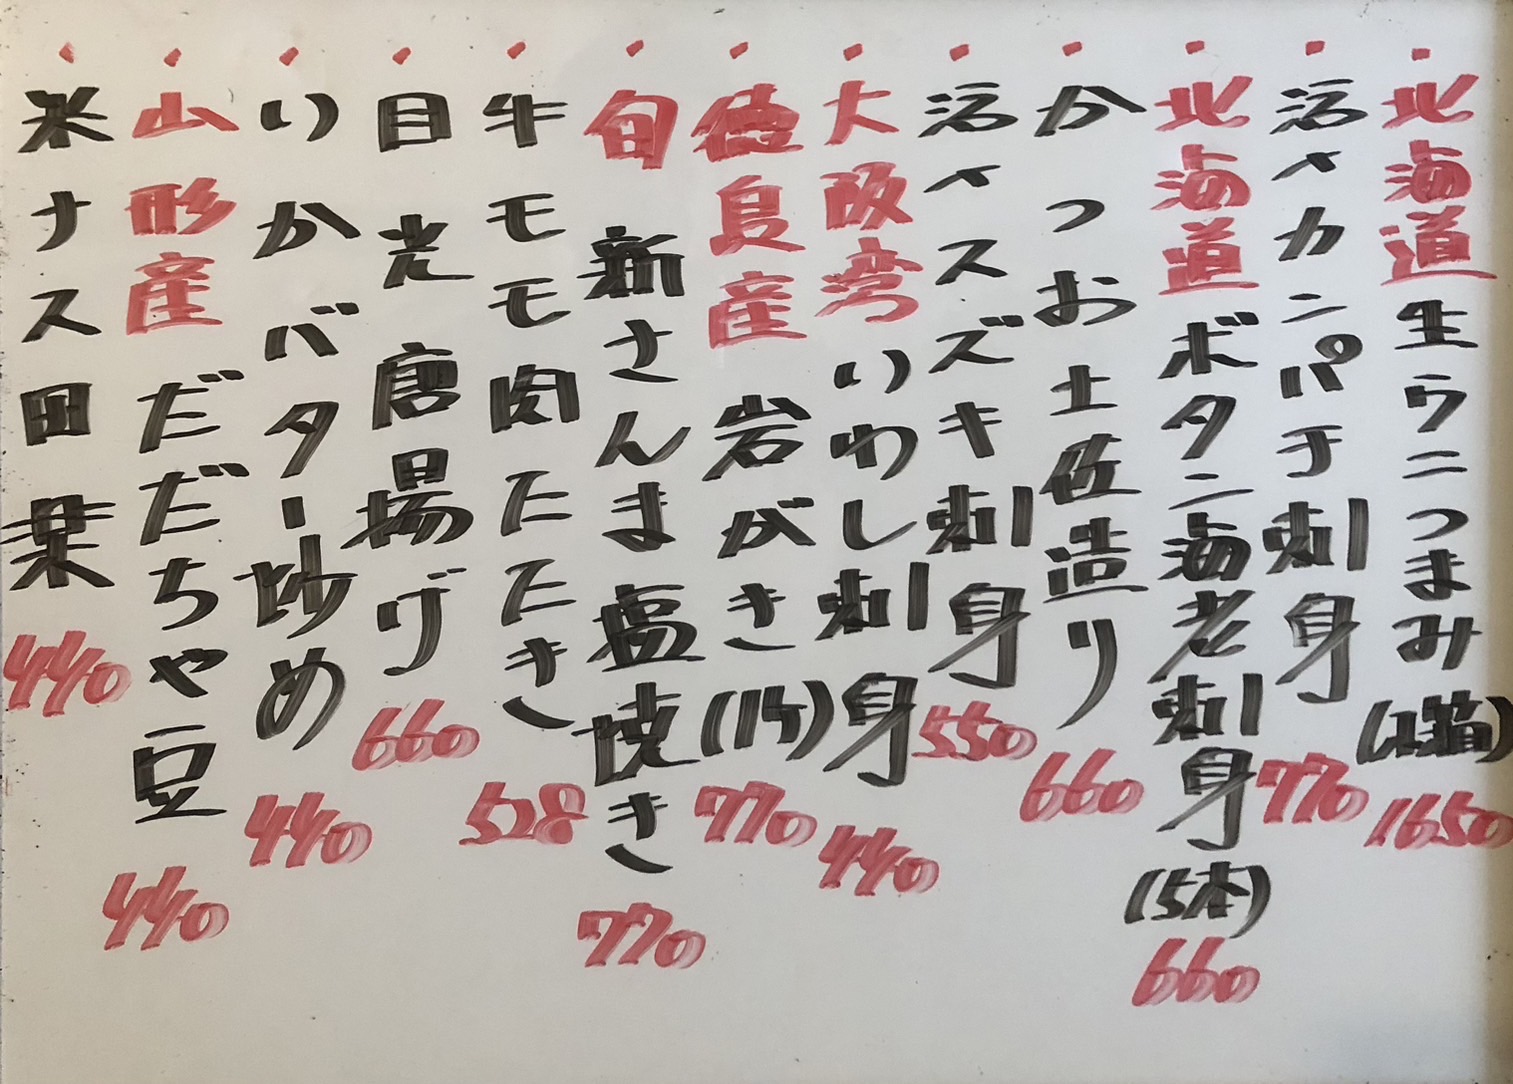 ・北海道生ウニつまみ 1650
・活〆カンパチ刺身 770
・北海道ボタン海老刺身(5本) 660
・かつお土佐造り 660
・活〆スズキ刺身 550
・大阪湾いわし刺身 440
・徳島産 岩がき(1ケ) 770
・旬 新さんま塩焼き 770
・牛モモ肉たたき 528
・目光唐揚げ 660
・いかバター炒め 440
・山形産だだちゃ豆 440
・米ナス田楽 440